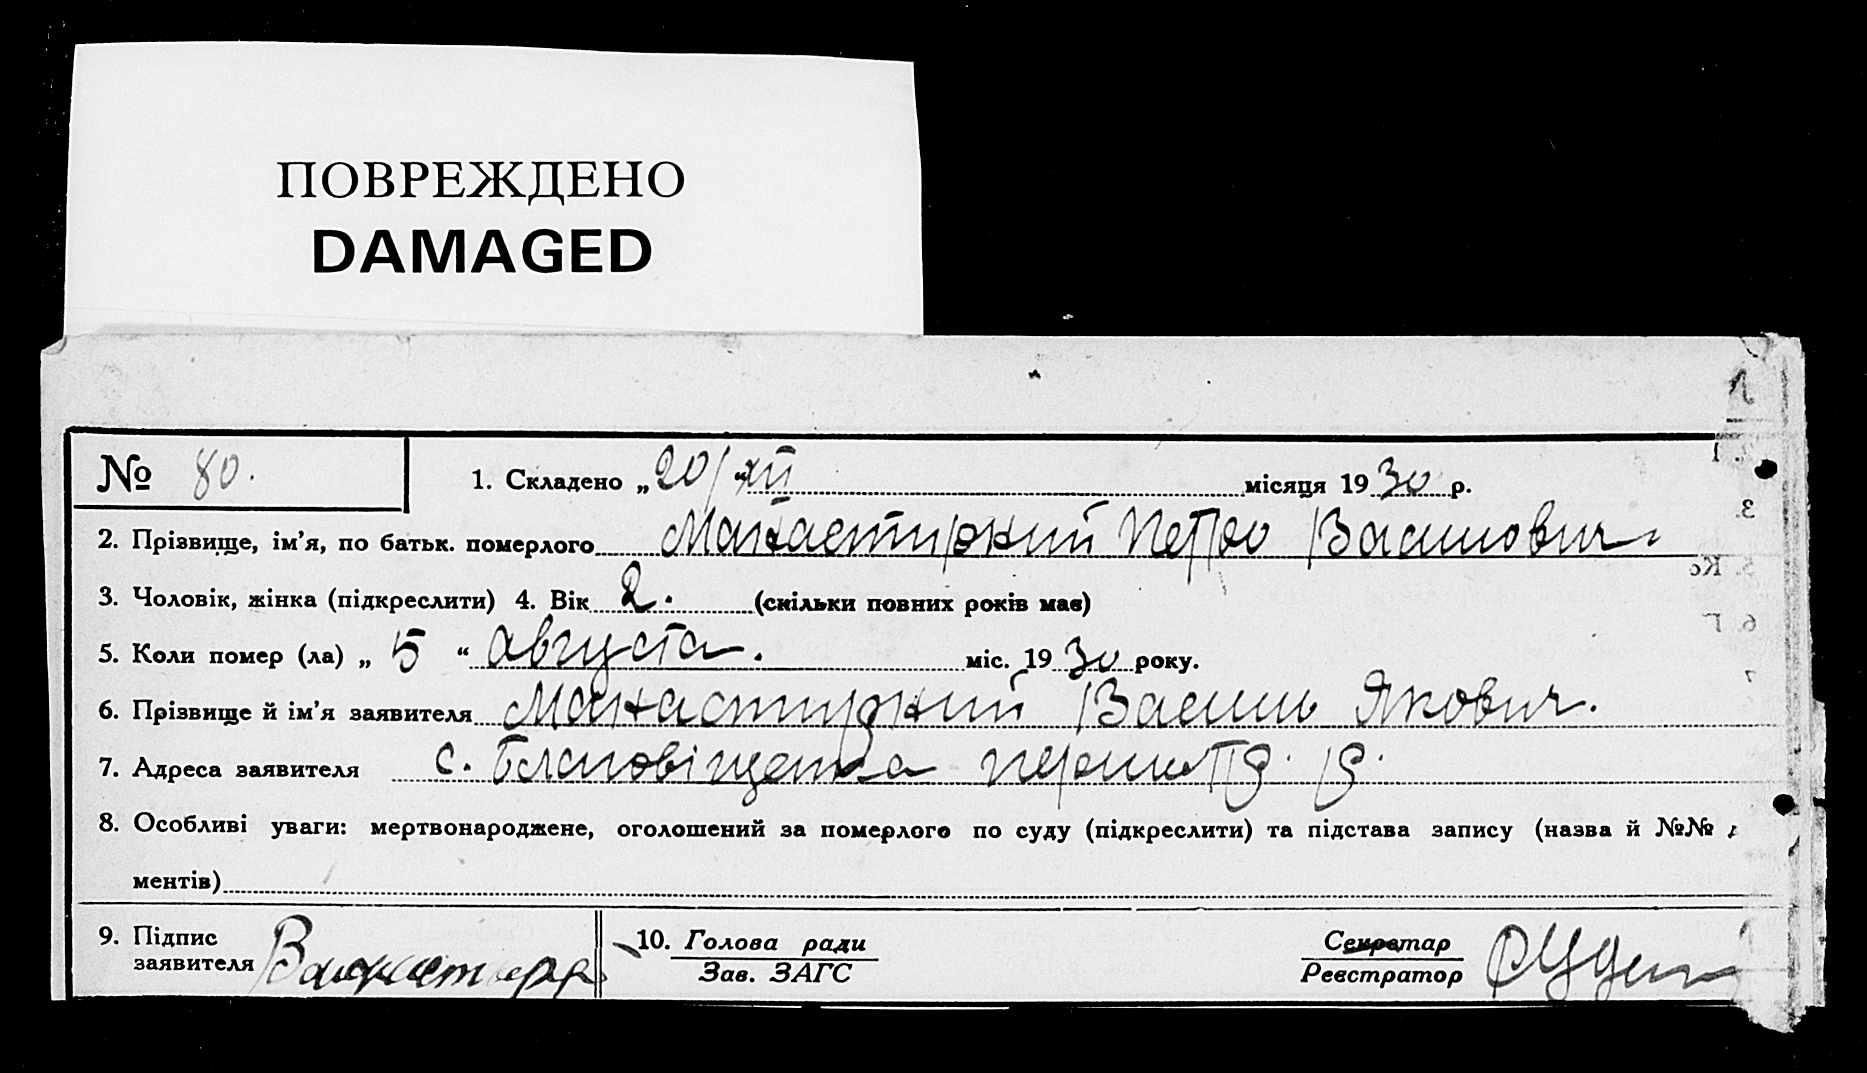 ПОВРЕЖДЕНО
DAMAGED
№ 80. 1. Складено „20/XII місяця 1930 р.
2. Прізвище, ім'я, по батьк. померлого Манастирний Петро Васильович.
3. Чоловік, жінка (підкреслити) 4. Вік 2. (скільки повних років мав)
5. Коли помер (ла) „ 5 “ августа. міс. 1930 року.
6. Прізвище й ім'я заявителя Манастирний Василь Якович.
7. Адреса заявителя с. Благовіщенка
8. Особливі уваги: мертвонароджене, оголошений за померлого по суду (підкреслити) та підстава запису (назва й №№
ментів)
9. Підпис
заявителя
10. Голова ради
Зав. ЗАГС
Секретар
Реєстратор